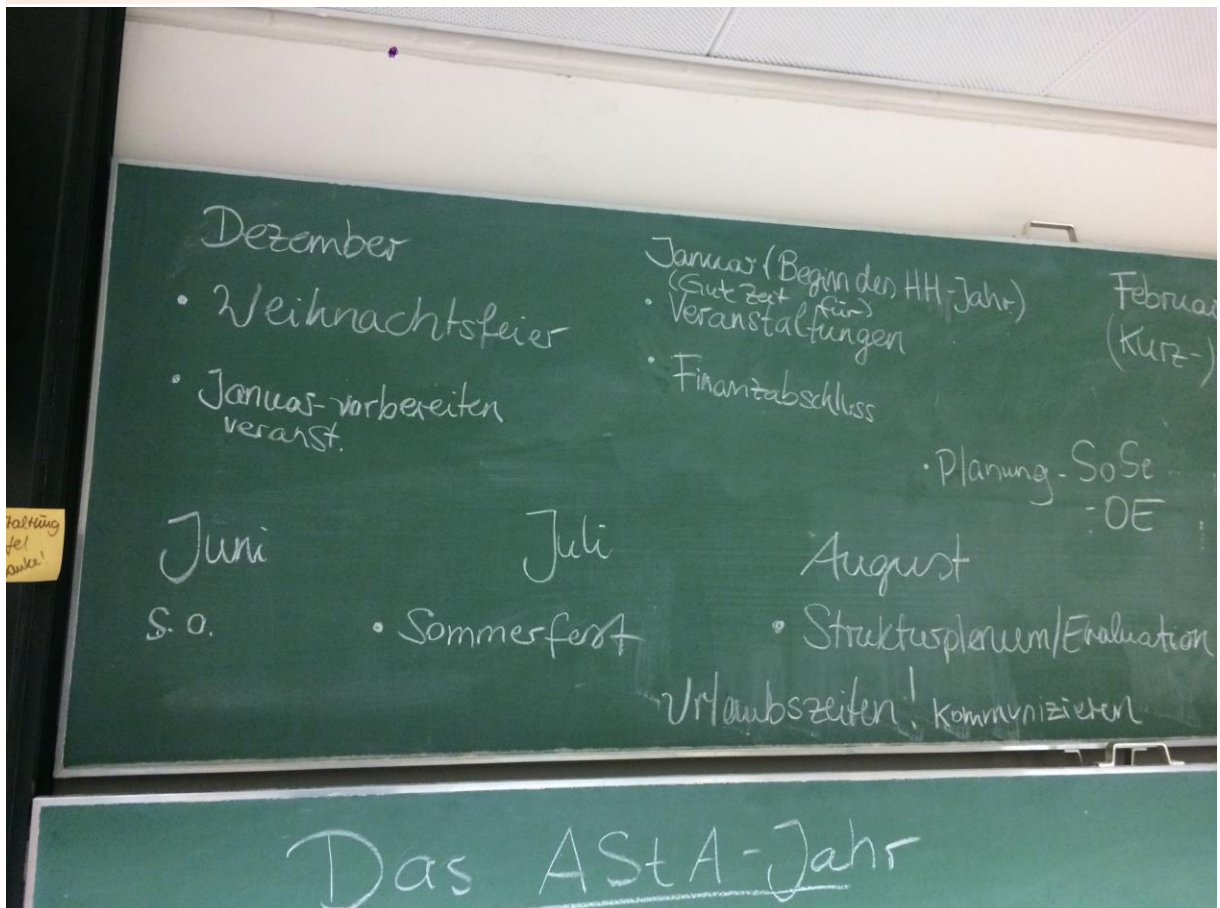 Dezember
• Weihnachtsfeier
• Januar-vorbereiten
veranst.
Januar (Beginn des HH-Jahr.)
(Gute Zeit für)
• Veranstaltungen
• Finanzabschluss
Februar
(Kurz-)
• Planung - SoSe
- OE
Juni
s. o.
Juli
• Sommerfest
August
• Strukturplenum/Evaluation
Urlaubszeiten! kommunizieren
Das AStA-Jahr